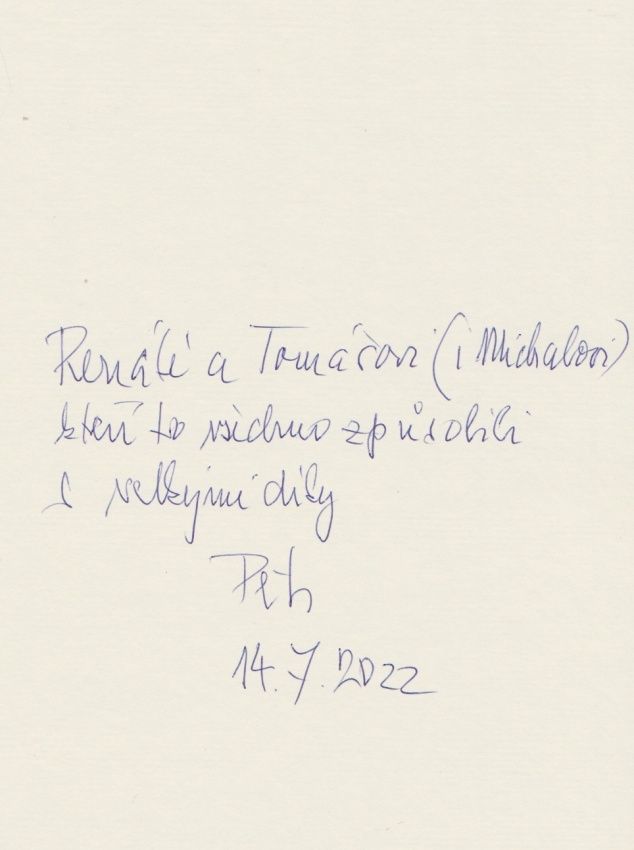 Renátě a Tomášovi (i Michalovi)
kteří to všechno způsobili
s velkými díky
Petr
14.7.2022